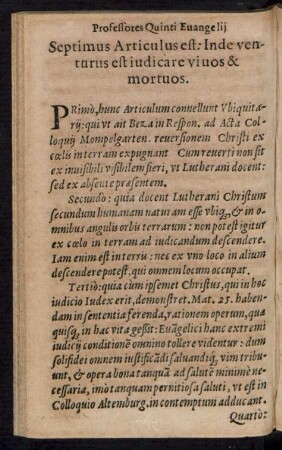 Professores Quinti Euangelij
Septimus Articulus est: Inde ven-
turus est iudicare viuos &
mortuos.
PRimò, hunc Articulum conuellunt Vbiquita-
rij: qui vt ait Beza in Respon. ad Acta Col-
loquij Mompelgarten. reuersionem Christi ex
cœlis in terram expugnant Cum reuerti non sit
ex inuisibili visibilem fieri, vt Lutherani docent:
sed ex absente præsentem.
Secundò: quia docent Lutherani Christum
secundum humanam naturam esse vbiq, & in o-
mnibus angulis orbis terrarum: non potest igitur
ex cœlo in terram ad iudicandum descendere.
Iam enim est in terris: nec ex vno loco in alium
descendere potest, qui omnem locum occupat.
Tertiò: quia cum ipsemet Christus, qui in hoc
iudicio Iudex erit, demonstret. Mat. 25. haben-
dam in sententia ferenda, rationem operum, quæ
quisq, in hac vita gessit: Euãgelici hanc extremi
iudicij conditionẽ omnino tollere videntur: dum
solifidei omnem iustificãdi saluandiq, vim tribu-
unt, & opera bona tanquã ad salutẽ minimè ne-
cessaria, imò tanquam pernitiosa saluti, vt est in
Colloquio Altemburg. in contemptum adducant.
Quartò: